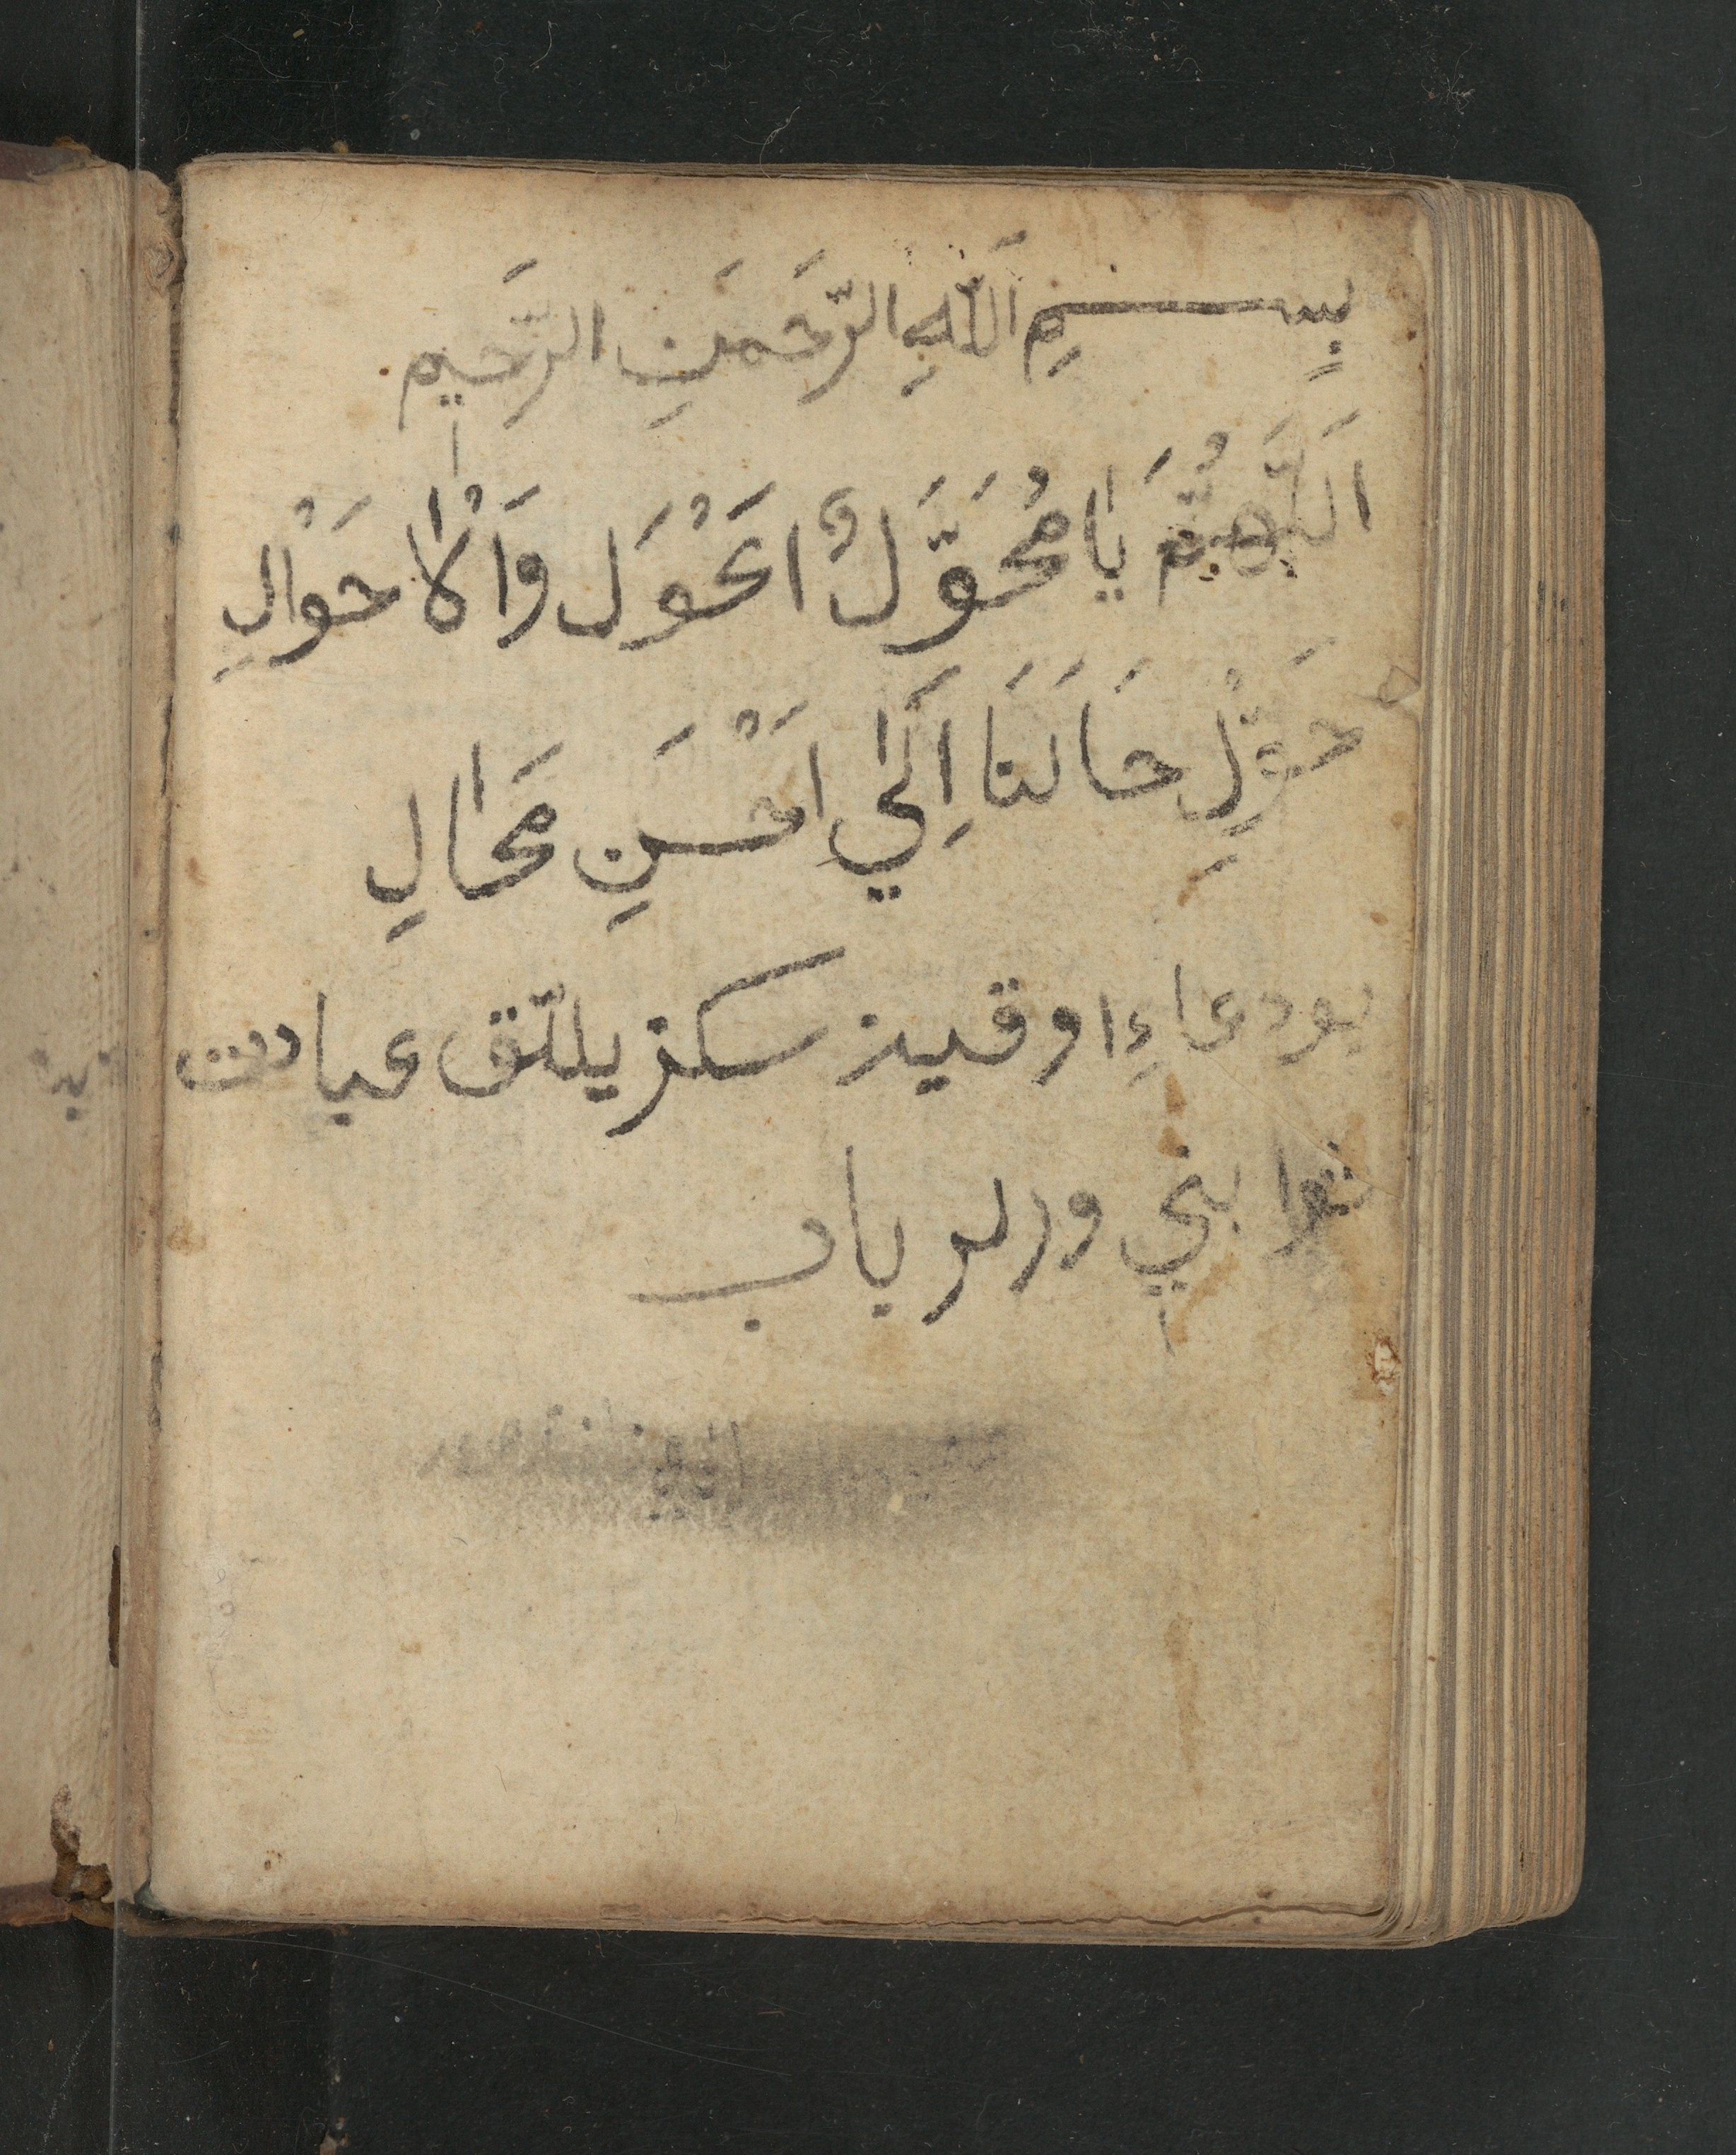 بِسْمِ اَللّٰهِ الرَّحَمَنِ الرَّحَيِم
اَللَّهُمَّ يَا مُحَوَّلُ احَوْلَ وَالْاَحَوْالِ
حَوِّلْ حَالَنَا اِلَي اَحْسَنِ مَحَالِ
بو دعاءِ اوقیز سكز يللّق عبادت
ثوابني ورلر يارب